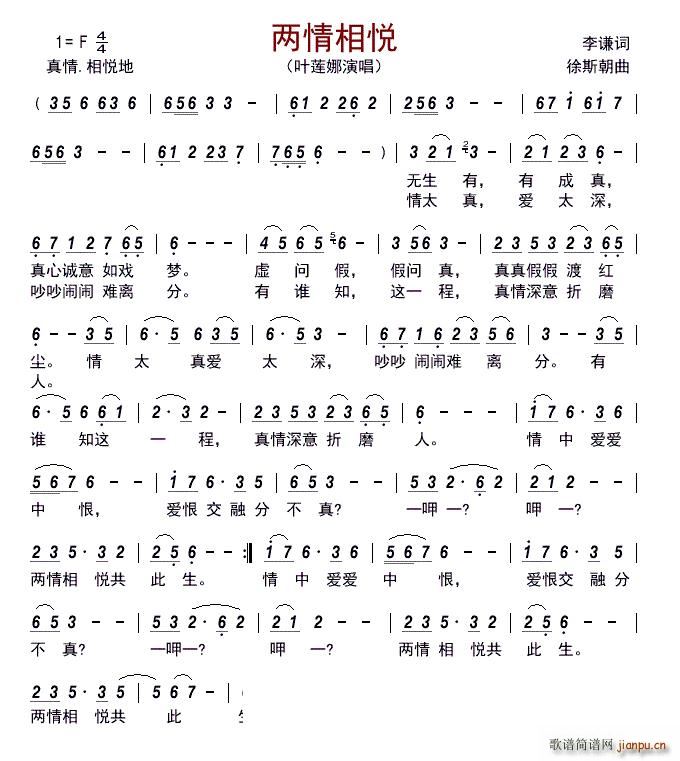 两情相悦
1= F 4/4
李谦词
真情.相悦地
（叶莲娜演唱）
徐斯朝曲
( 3 5 6 6 3 6 | 6 5 6 3 3 - | 6 1 2 2 6 2 | 2 5 6 3 - - | 6 7 1 6 1 7 |
6 5 6 3 - - | 6 1 2 2 3 7 | 7 6 5 6 - - ) | 3 2 1 3 - | 2 1 2 3 6 - |
无生 有， 有 成 真，
情太 真， 爱 太 深，
6 7 1 2 7 6 5 | 6 - - - | 4 5 6 5 6 - | 3 5 6 3 - | 2 3 5 3 2 3 6 5 |
真心诚意 如戏 梦。 虚 问 假， 假问 真， 真真假假 渡 红
吵吵闹闹 难离 分。 有 谁 知， 这一 程， 真情深意 折 磨
6 - - 3 5 | 6 · 5 6 3 5 | 6 · 5 3 - | 6 7 1 6 2 3 5 6 | 3 - - 3 5 |
尘。 情 太 真爱 太 深， 吵吵 闹闹难 离 分。 有
人。
6 · 5 6 6 1 | 2 · 3 2 - | 2 3 5 3 2 3 6 5 | 6 - - - | 1 7 6 · 3 5 |
谁 知这 一 程， 真情深意 折 磨 人。 情 中 爱爱
5 6 7 6 - | 1 7 6 · 3 5 | 6 5 3 - | 5 3 2 · 6 2 | 2 1 2 - |
中 恨， 爱恨 交 融分 不 真? 一呷 一? 呷 一?
2 3 5 · 3 2 | 2 5 6 - - :‖ 1 7 6 · 3 5 | 5 6 7 6 - | 1 7 6 · 3 5 |
两情相 悦共 此 生。 情 中 爱爱 中 恨， 爱恨交 融分
6 5 3 - | 5 3 2 · 6 2 | 2 1 2 - | 2 3 5 · 3 2 | 2 5 6 - - |
不 真? 一呷一? 呷 一? 两情相 悦共 此 生。
2 3 5 · 3 2 3 5 | 5 6 7 - - |
两情相 悦共 此
歌谱简谱网
jianpu.cn